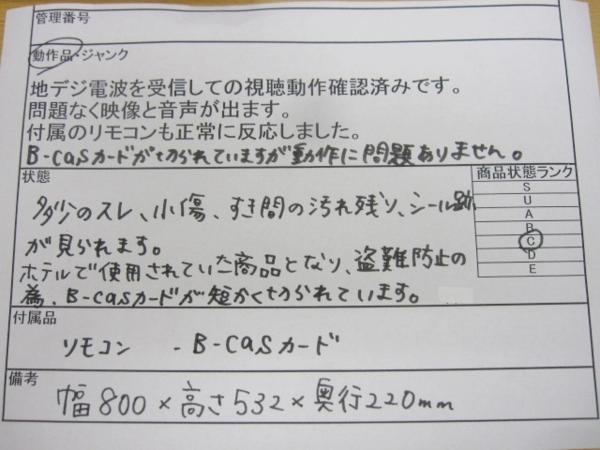 管理番号
動作品・ジャンク
地デジ電波を受信しての視聴動作確認済みです。
問題なく映像と音声が出ます。
付属のリモコンも正常に反応しました。
B-casカードが切られていますが動作に問題ありません。
状態
商品状態ランク
S
U
A
B
C
D
E
多少のスレ、小傷、すき間の汚れ残り、シール跡
が見られます。
ホテルで使用されていた商品となり、盗難防止の
為、B-casカードが短かく切られています。
付属品
リモコン - B-casカード
備考
幅800×高さ532×奥行220mm